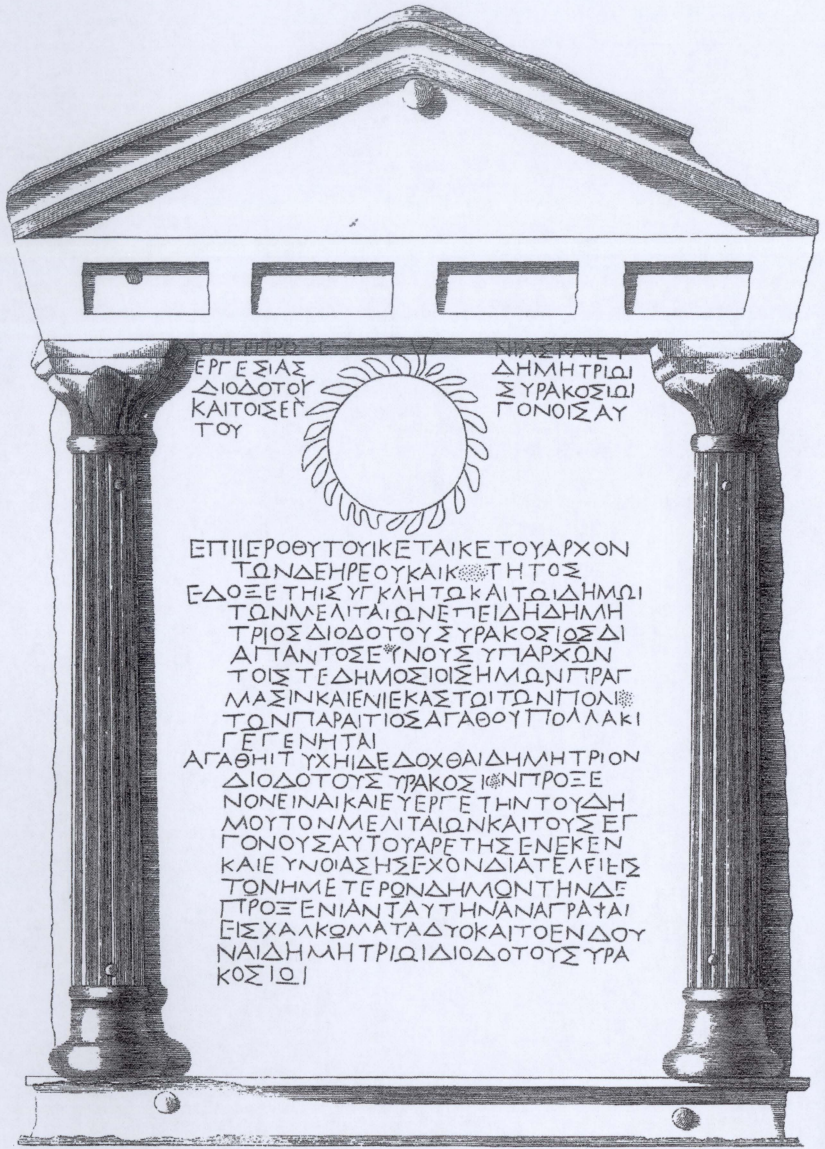 ΥΠΕΡΠΡΟ ΝΙΑΣΚΑΙΕΥ
ΕΡΓΕΣΙΑΣ ΔΗΜΗΤΡΙΩΙ
ΔΙΟΔΟΤΟΥ ΣΥΡΑΚΟΣΙΩΙ
ΚΑΙΤΟΙΣΕΓ ΓΟΝΟΙΣΑΥ
ΤΟΥ
ΕΠΙΙΕΡΟΘΥΤΟΥΙΚΕΤΑΙΚΕΤΟΥΑΡΧΟΝ
ΤΩΝΔΕΗΡΕΟΥΚΑΙΚ ΤΗΤΟΣ
ΕΔΟΞΕΤΗΙΣΥΓΚΛΗΤΩΚΑΙΤΩΙΔΗΜΩΙ
ΤΩΝΜΕΛΙΤΑΙΩΝΕΠΕΙΔΗΔΗΜΗ
ΤΡΙΟΣΔΙΟΔΟΤΟΥΣΥΡΑΚΟΣΙΟΣΔΙ
ΑΠΑΝΤΟΣΕΥΝΟΥΣΥΠΑΡΧΩΝ
ΤΟΙΣΤΕΔΗΜΟΣΙΟΙΣΗΜΩΝΠΡΑΓ
ΜΑΣΙΝΚΑΙΕΝΙΕΚΑΣΤΩΙΤΩΝΠΟΛΙ
ΤΩΝΠΑΡΑΙΤΙΟΣΑΓΑΘΟΥΠΟΛΛΑΚΙ
ΓΕΓΕΝΗΤΑΙ
ΑΓΑΘΗΙΤΥΧΗΙΔΕΔΟΧΘΑΙΔΗΜΗΤΡΙΟΝ
ΔΙΟΔΟΤΟΥΣΥΡΑΚΟΣΙΟΝΠΡΟΞΕ
ΝΟΝΕΙΝΑΙΚΑΙΕΥΕΡΓΕΤΗΝΤΟΥΔΗ
ΜΟΥΤΟΝΜΕΛΙΤΑΙΩΝΚΑΙΤΟΥΣΕΓ
ΓΟΝΟΥΣΑΥΤΟΥΑΡΕΤΗΣΕΝΕΚΕΝ
ΚΑΙΕΥΝΟΙΑΣΗΣΕΧΟΝΔΙΑΤΕΛΕΙΕΙΣ
ΤΩΝΗΜΕΤΕΡΩΝΔΗΜΩΝΤΗΝΔΕ
ΠΡΟΞΕΝΙΑΝΤΑΥΤΗΝΑΝΑΓΡΑΨΑΙ
ΕΙΣΧΑΛΚΩΜΑΤΑΔΥΟΚΑΙΤΟΕΝΔΟΥ
ΝΑΙΔΗΜΗΤΡΙΩΙΔΙΟΔΟΤΟΥΣΥΡΑ
ΚΟΣΙΩΙ